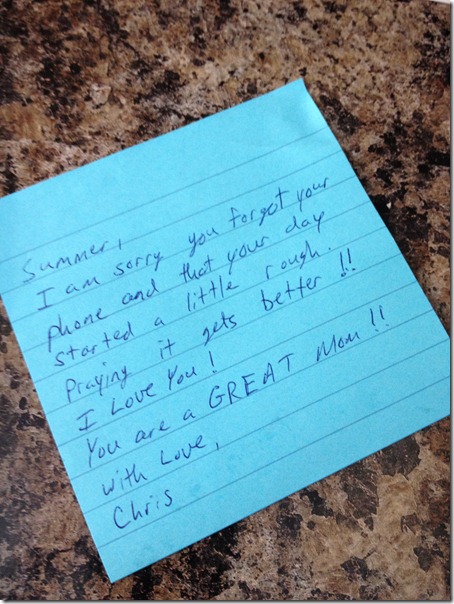 Summer,
I am sorry you forgot your
phone and that your day
started a little rough.
Praying it gets better!!
I Love You!
You are a GREAT Mom!!
with Love,
Chris